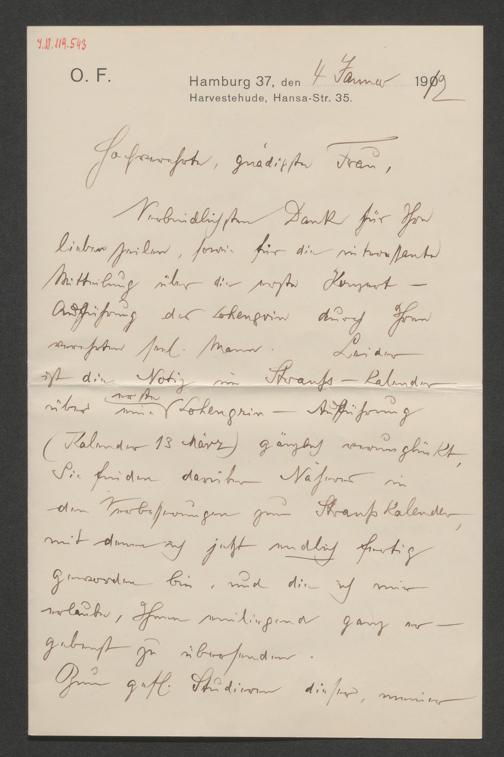 O. F.
Hamburg 37, den 4 Januar 1912
Harvestehude, Hansa-Str. 35.
Hochverehrte, gnädigste Frau,
Verbindlichsten Dank für Ihre
lieben Zeilen, sowie für die interessante
Mitteilung über die erste Konzert-
Aufführung des Lohengrin durch Ihren
verehrten sel. Mann. Leider
ist die Notiz im Strauß-Kalender
über erste Lohengrin-Aufführung
(Kalender 13 März) gänzlich verunglückt,
Sie finden darüber Näheres in
den Verbesserungen zum Strauß Kalender,
mit denen ich jetzt endlich fertig
geworden bin, und die ich mir
erlaube, Ihnen einliegend ganz er-
gebenst zu übersenden.
Zum gefl. Studieren dieser, meiner